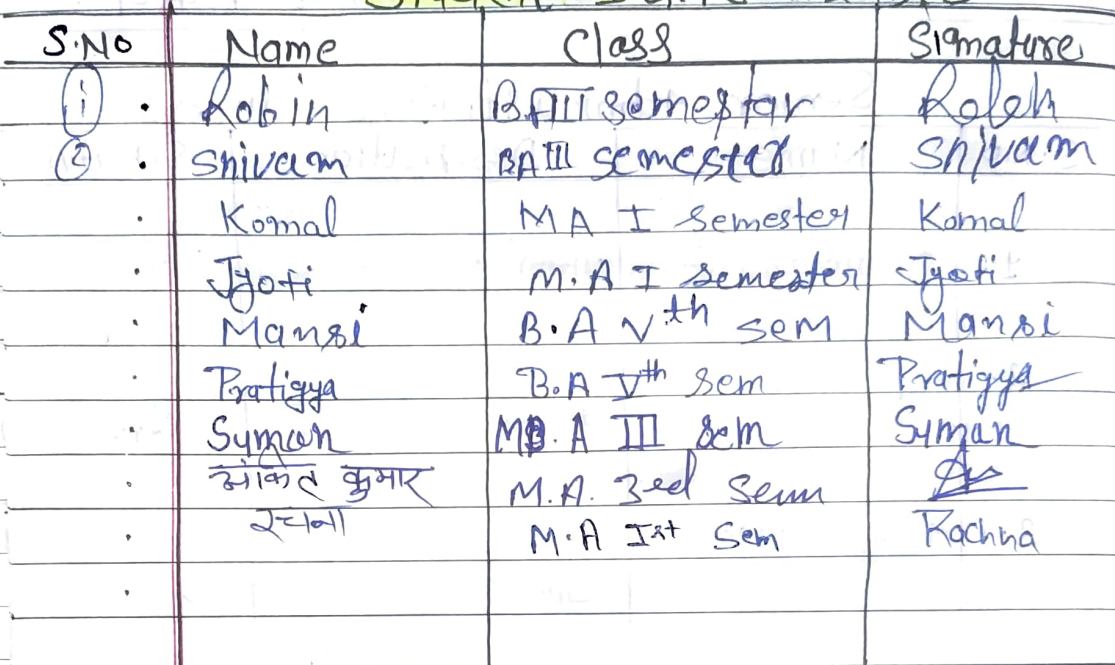 S.No Name Class Signature
1 . Robin BA III semestar
2 . Shivam BA III semester Shivam
. Komal MA I semester Komal
. Jyoti M.A I semester Jyoti
. Mansi B.A Vth sem Mansi
. Pratigya B.A Vth sem Pratigya
. Syman M.A III sem Syman
. अंकित कुमार M.A. 3rd Sem
. रचना M.A Ist Sem Rachna
.